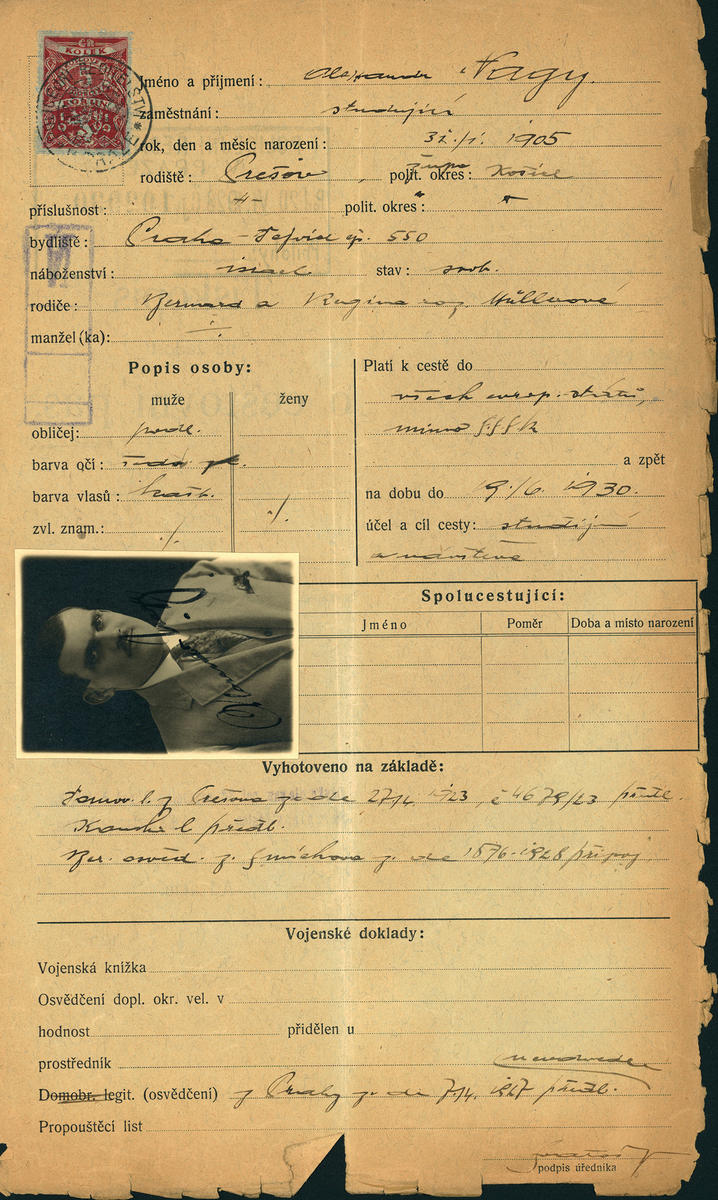 ČR
KOLEK
5
KORUN
Jméno a příjmení: Alexander Nagy
zaměstnání: studující
rok, den a měsíc narození: 31./1. 1905
rodiště: Prešov, polit. okres: župa Košice
příslušnost: -"- polit. okres: "
bydliště: Praha - Dejvice čp. 550
náboženství: israel stav: svob.
rodiče: Bernard a Regina roz. Müllerová
manžel (ka): ./.
Popis osoby:
muže ženy
obličej: podl.
barva očí: šedá
barva vlasů: kašt.
zvl. znam.: ./. ./.
Platí k cestě do
všech evrop. států,
mimo SSSR
a zpět
na dobu do 19./6. 1930.
účel a cíl cesty: studijní
a návštěva
Spolucestující:
Jméno Poměr Doba a místo narození
Vyhotoveno na základě:
Domov. l. z Prešova ze dne 27/4 1923, č 4679/23 předl.
předl.
Ber. osvěd. z Smíchova z. de 18/6 1928 připoj.
Vojenské doklady:
Vojenská knížka
Osvědčení dopl. okr. vel. v
hodnost přidělen u
prostředník neodveden
Domobr. legit. (osvědčení) z Prahy ze dne 7/4. 1927 předl.
Propouštěcí list
podpis úředníka